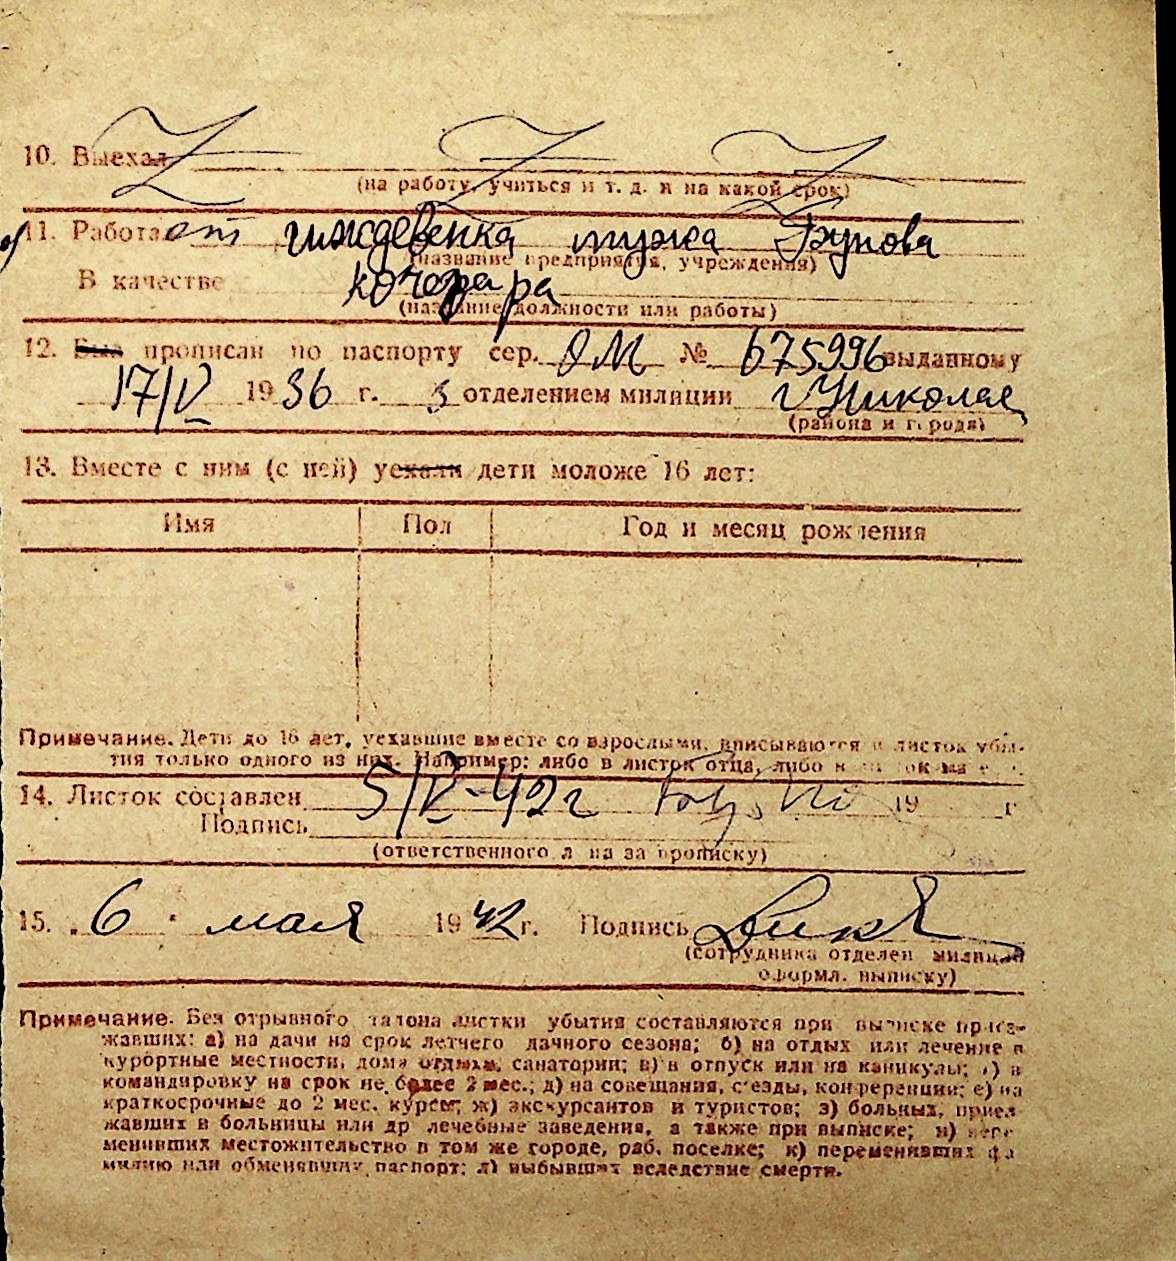 10. Выехал
(на работу, учиться и т. д. и на какой срок)
11. Работа от иждевенка мужа
(название предприятия, учреждения)
В качестве
(название должности или работы)
12. Был прописан по паспорту сер. ОМ № 675996 выданному
17/V 1936 г. 3 отделением милиции г Николае
(района и города)
13. Вместе с ним (с ней) уехали дети моложе 16 лет:
Имя Пол Год и месяц рождения
Примечание. Дети до 16 лет, уехавшие вместе со взрослыми, вписываются в листок убы-
тия только одного из них. Например: либо в листок отца, либо в
14. Листок составлен 5/V-42 г 19 г
Подпись
(ответственного лица за прописку)
15. 6 мая 1942 г. Подпись
(сотрудника отделен милиции
оформл. выписку)
Примечание. Без отрывного талона листки убытия составляются при выписке приез-
жавших: а) на дачи на срок летнего дачного сезона; б) на отдых или лечение в
курортные местности, дома отдыха, санатории; в) в отпуск или на каникулы; г) в
командировку на срок не более 2 мес.; д) на совещания, съезды, конференции; е) на
краткосрочные до 2 мес. курсы; ж) экскурсантов и туристов; з) больных, приез
жавших в больницы или др лечебные заведения, а также при выписке; и) пере
менивших местожительство в том же городе, раб. поселке; к) переменивших фа
милию или обменявших паспорт; л) выбывших вследствие смерти.